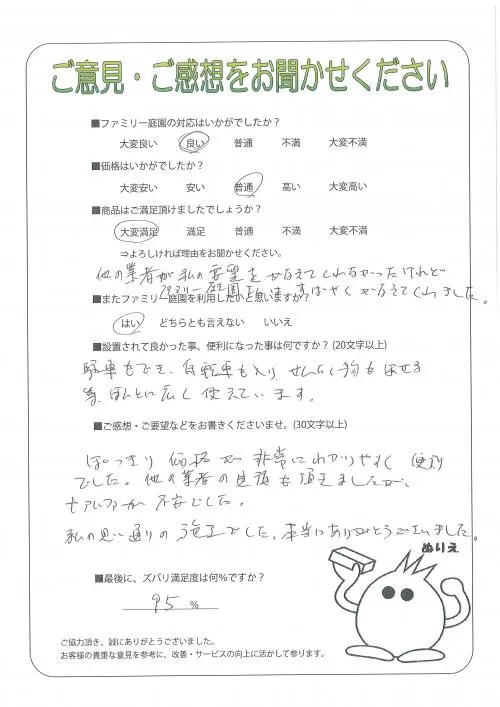 ご意見・ご感想をお聞かせください
■ファミリー庭園の対応はいかがでしたか？
大変良い 良い 普通 不満 大変不満
■価格はいかがでしたか？
大変安い 安い 普通 高い 大変高い
■商品はご満足頂けましたでしょうか？
大変満足 満足 普通 不満 大変不満
⇒よろしければ理由をお聞かせください。
他の業者が私の要望をかなえてくれなかったけれど
ファミリー庭園さんは、すばやくかなえてくれました。
■またファミリー庭園を利用したいと思いますか？
はい どちらとも言えない いいえ
■設置されて良かった事、便利になった事は何ですか？(20文字以上)
駐車もでき、自転車も入り せんたく物も干せる
等、ほんとに広く使えています。
■ご感想・ご要望などをお書きくださいませ。(30文字以上)
はっきり価格が非常にわかりやすく 便利
でした。他の業者の見積も頂きましたが、
不安でした。
私の思い通りの施工でした。本当にありがとうございました。
ぬりえ
■最後に、ズバリ満足度は何％ですか？
95 %
ご協力頂き、誠にありがとうございました。
お客様の貴重な意見を参考に、改善・サービスの向上に活かして参ります。